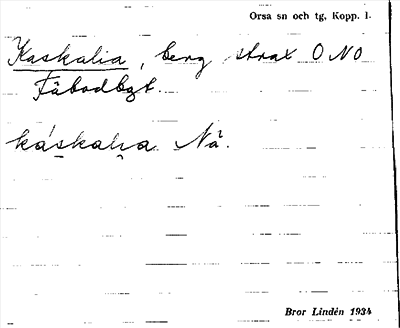 Orsa sn och tg, Kopp. l.
Kaskalia, berg strax O NO
Fäbodbgt.
káskalıa. Nå.
Bror Lindén 1934